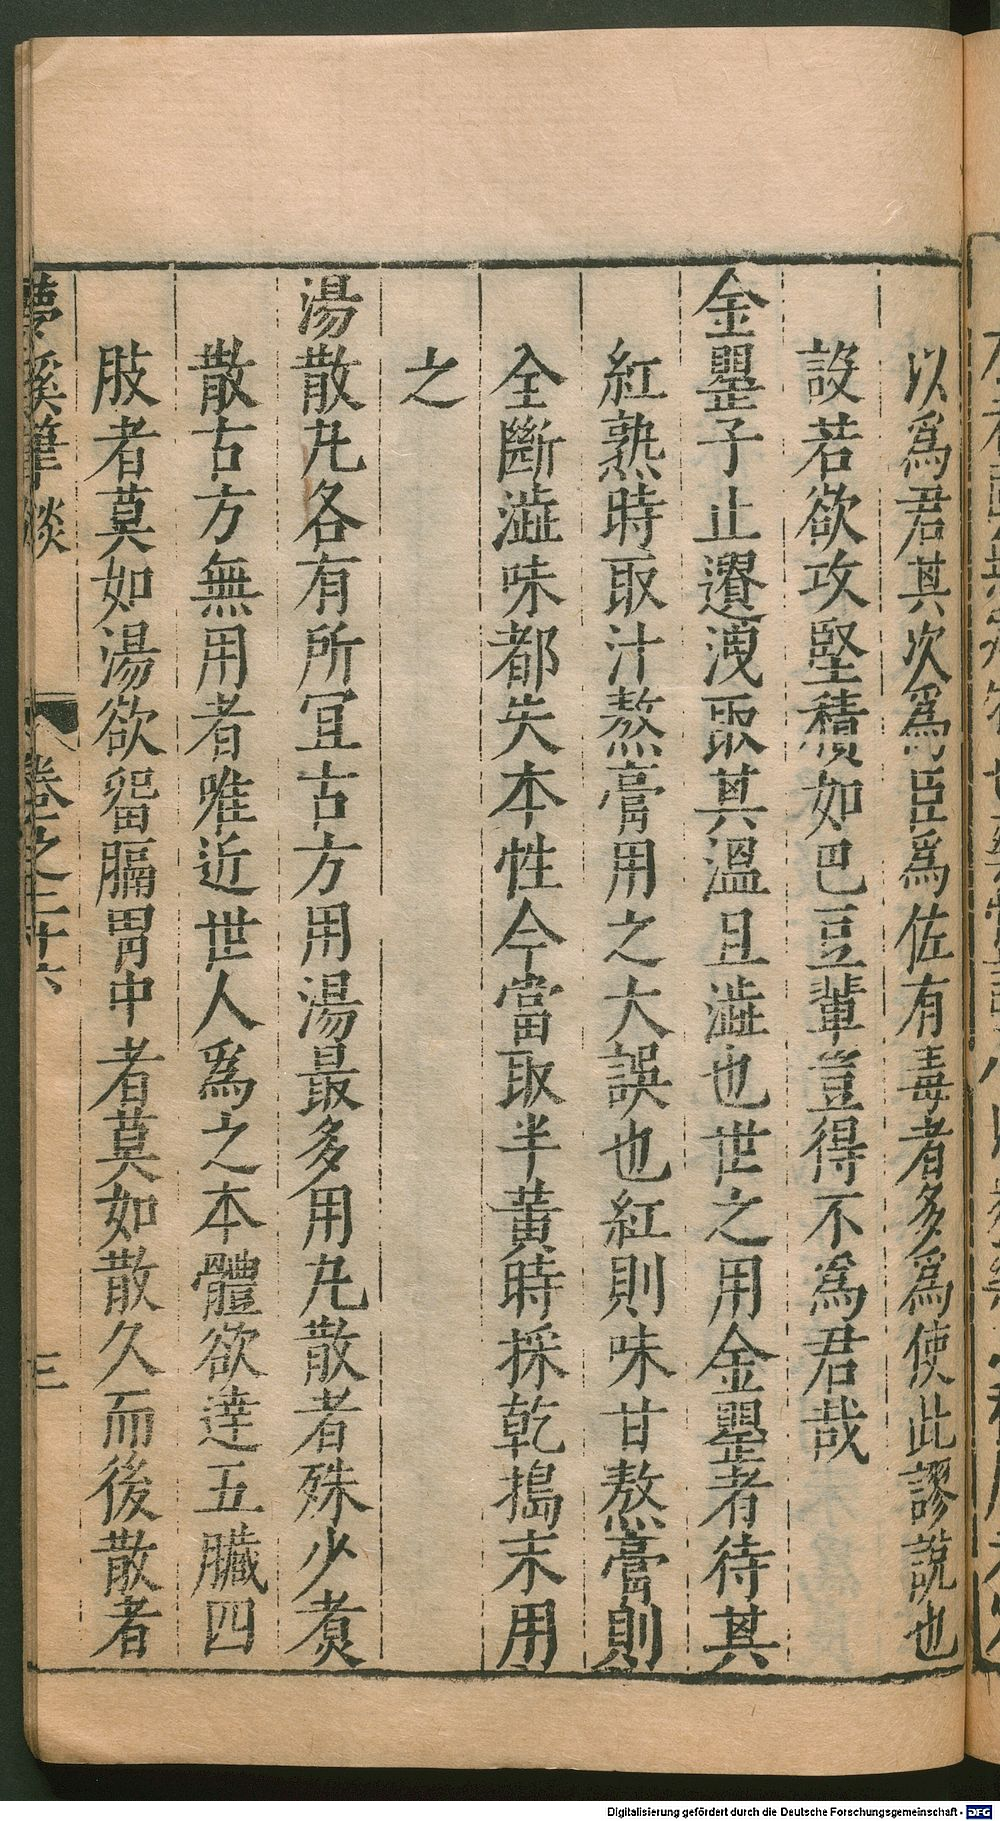 以爲君其次爲臣爲佐有毒者多爲使此謬說也
設若欲攻堅積如巴豆軰豈得不爲君哉
金罌子止遺洩取其溫且澁也世之用金罌者待其
紅熟時取汁熬膏用之大誤也紅則味甘熬膏則
全斷澁味都失本性今當取半黃時採乾搗末用
之
湯散凡各有所冝古方用湯最多用凡散者殊少煑
散古方無用者唯近世人爲之本體欲達五臟四
肢者莫如湯欲畱膈胃中者莫如散久而後散者
夢溪筆談 卷之二十六 三
Digitalisierung gefördert durch die Deutsche Forschungsgemeinschaft - DFG